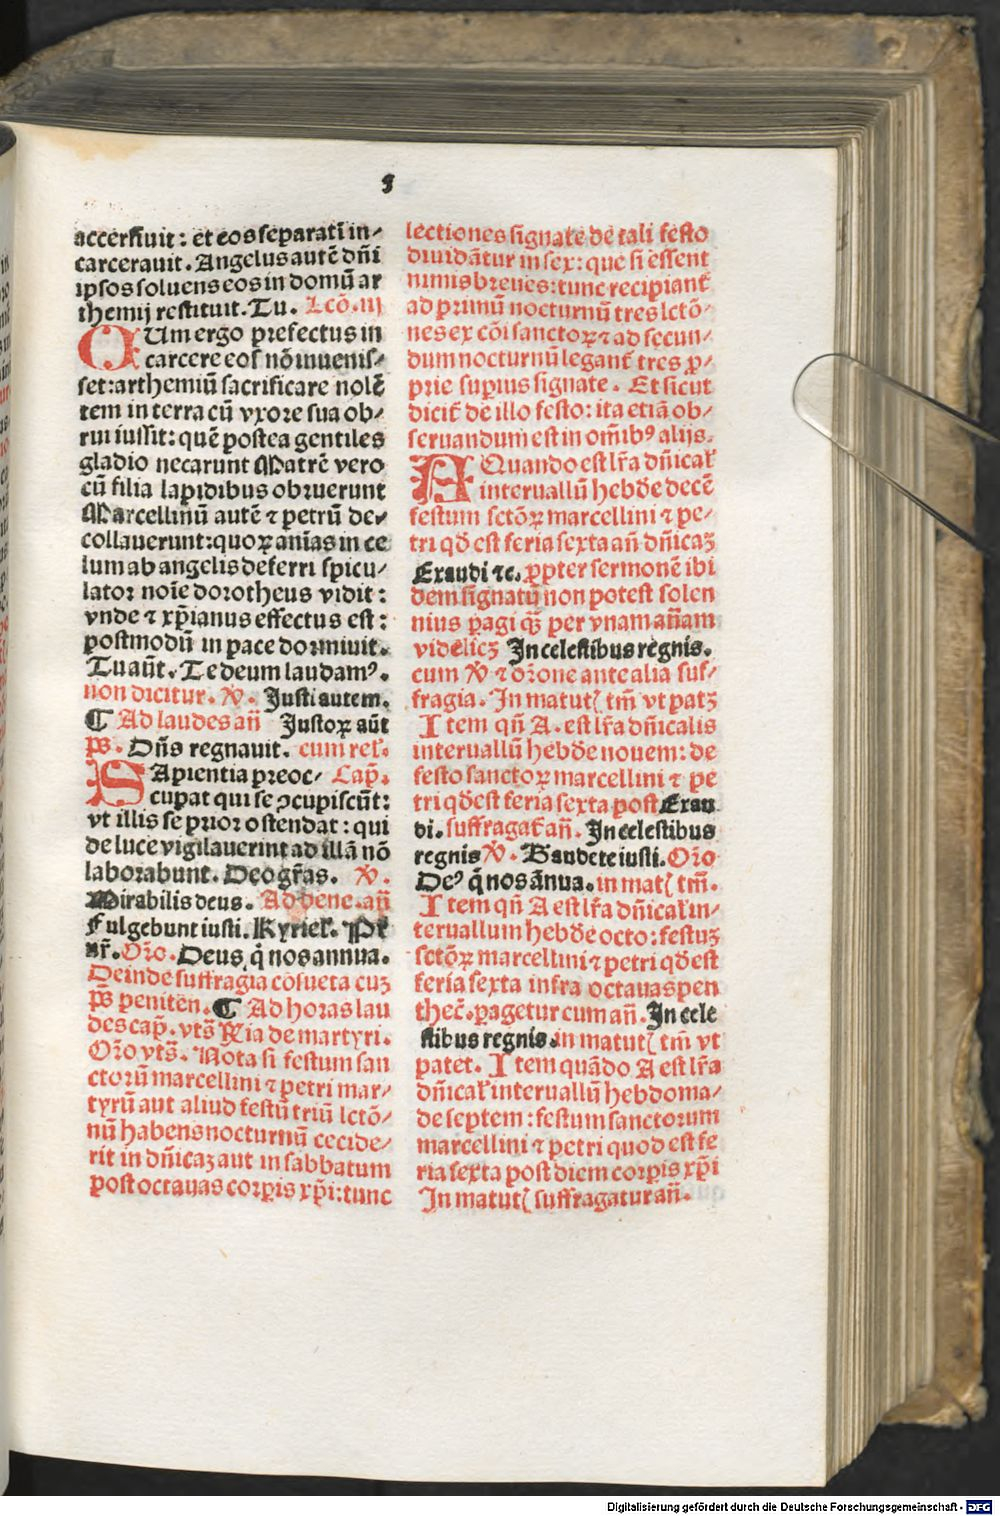 5
accersiuit: et eos separatĩ in⸗
carcerauit. Angelus autẽ dñi
ipsos soluens eos in domũ ar
themij restituit. Tu. Lcõ. iij
CUm ergo prefectus in
carcere eos nõ inuenis⸗
set: arthemiũ sacrificare nolẽ
tem in terra cũ vxore sua ob⸗
rui iussit: quẽ postea gentiles
gladio necarunt Matrẽ vero
cũ filia lapidibus obruerunt
Marcellinũ autẽ ⁊ petrũ de⸗
collauerunt: quoꝝ anĩas in ce
lum ab angelis deferri spicu⸗
lator noĩe dorotheus vidit:
vnde ⁊ xp̃ianus effectus est:
postmodũ in pace dormiuit.
Tu aũt. Te deum laudamꝰ.
non dicitur. ℣. Justi autem.
¶ Ad laudes añ Justoꝝ aũt
p̃s. Dñs regnauit. cum relꝭ.
SApientia preoc⸗ Cap̃.
cupat qui se ꝯcupiscũt:
vt illis se prior ostendat: qui
de luce vigilauerint ad illã nõ
laborabunt. Deo gr̃as. ℣.
Mirabilis deus. Ad bene. añ
Fulgebunt iusti. Kyrieł. Pr̃
nr̃. Or̃o. Deus q̃ nos annua.
Deinde suffragia cõsueta cuȝ
p̃s peniteñ. ¶ Ad horas lau
des cap̃. vts̃ R̃ia de martyri.
Or̃o vts̃. Nota si festum san
ctorũ marcellini ⁊ petri mar⸗
tyrũ aut aliud festũ triũ lctõ⸗
nũ habens nocturnũ cecide⸗
rit in dñicaȝ aut in sabbatum
post octauas corꝑis xp̃i: tunc
lectiones signate de tali festo
diuidãtur in sex: que si essent
nimis breues: tunc recipiant᷑
ad primũ nocturnũ tres lctõ⸗
nes ex cõi sanctoꝝ ⁊ ad secun⸗
dum nocturnũ legant᷑ tres ꝓ⸗
prie suꝑius signate. Et sicut
dicit᷑ de illo festo: ita etiã ob⸗
seruandum est in om̃ibꝰ alijs.
A Quando est lr̃a dñicał
interuallũ hebd̃e decẽ
festum sctõꝝ marcellini ⁊ pe⸗
tri qd̃ est feria sexta añ dñicaȝ
Exaudi ⁊c. ꝓpter sermonẽ ibi
dem signatũ non potest solen
nius ꝑagi qȝ̃ per vnam añam
videlicȝ In celestibus regnis.
cum ℣ ⁊ or̃one ante alia suf⸗
fragia. In matut᷑ tm̃ vt patȝ
Item qñ A. est lr̃a dñicalis
interuallũ hebd̃e nouem: de
festo sanctoꝝ marcellini ⁊ pe
tri qd̃ est feria sexta post Exau
di. suffragat᷑ añ. In celestibus
regnis ℣. Gaudete iusti. Or̃o
Deꝰ q̃ nos ãnua. in mat᷑ tm̃.
Item qñ A est lr̃a dñicał in⸗
teruallum hebd̃e octo: festuȝ
sctõꝝ marcellini ⁊ petri qd̃ est
feria sexta infra octauas pen
thec̃. ꝑagetur cum añ. In cele
stibus regnis. in matut᷑ tm̃ vt
patet. Item quãdo A est lr̃a
dñicał interuallũ hebdoma⸗
de septem: festum sanctorum
marcellini ⁊ petri quod est fe
ria sexta post diem corꝑis xp̃i
In matut᷑ suffragatur añ.
Digitalisierung gefördert durch die Deutsche Forschungsgemeinschaft - DFG